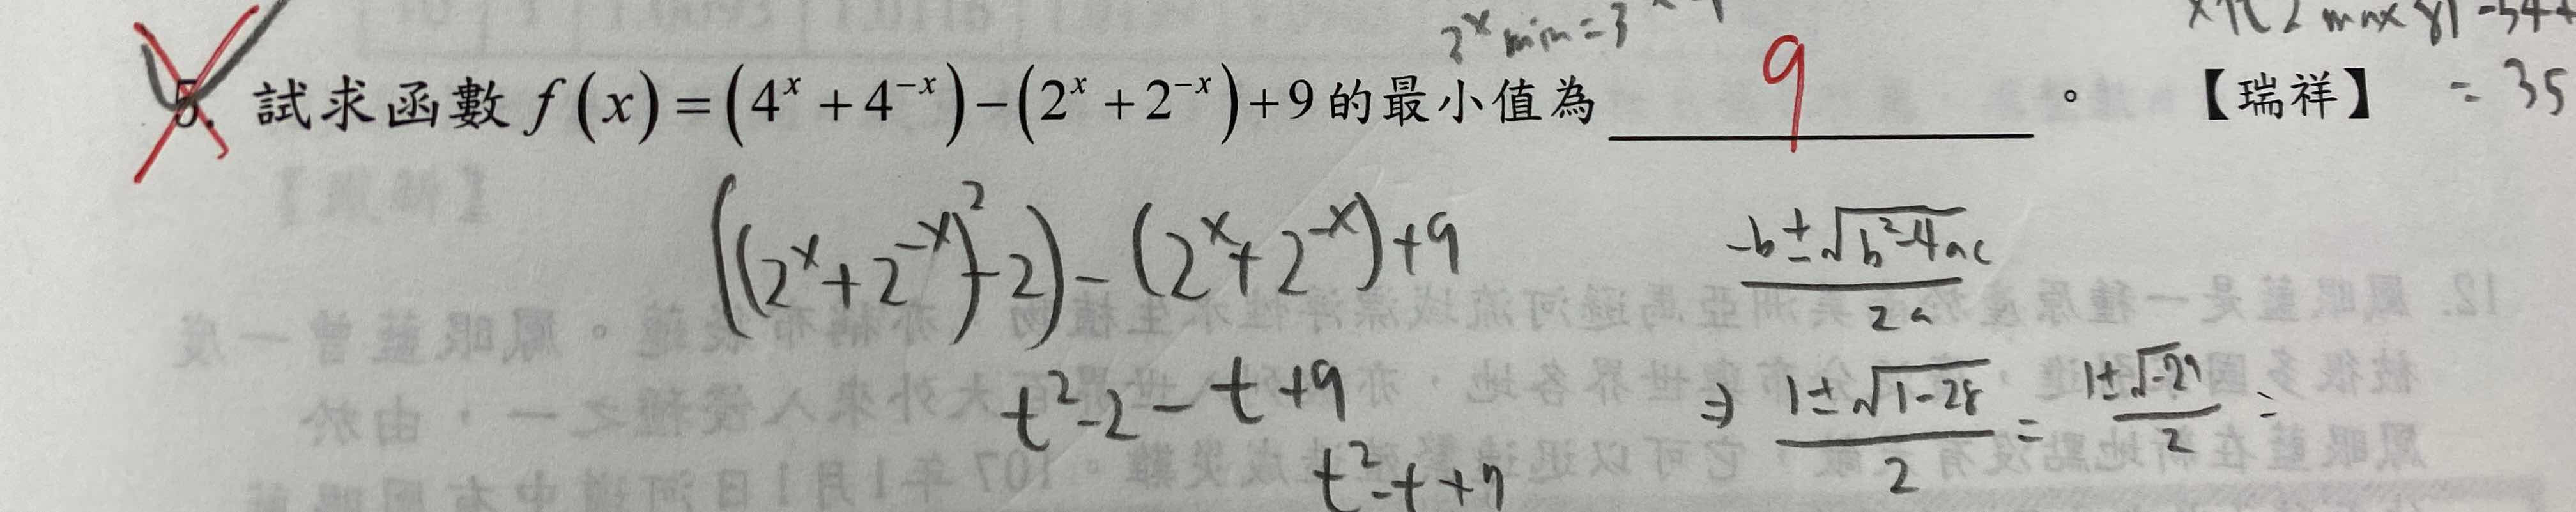 2ˣ min = 3
max 81 - 54 +
5. 試求函數 f(x) = (4ˣ + 4⁻ˣ) − (2ˣ + 2⁻ˣ) + 9 的最小值為 9 。 【瑞祥】 = 35
((2ˣ + 2⁻ˣ)² - 2) - (2ˣ + 2⁻ˣ) + 9
-b ± √(b² - 4ac) / 2a
t² - 2 - t + 9
⇒ 1 ± √(1 - 28) / 2 = 1 ± √(-29) / 2 =
t² - t + 7